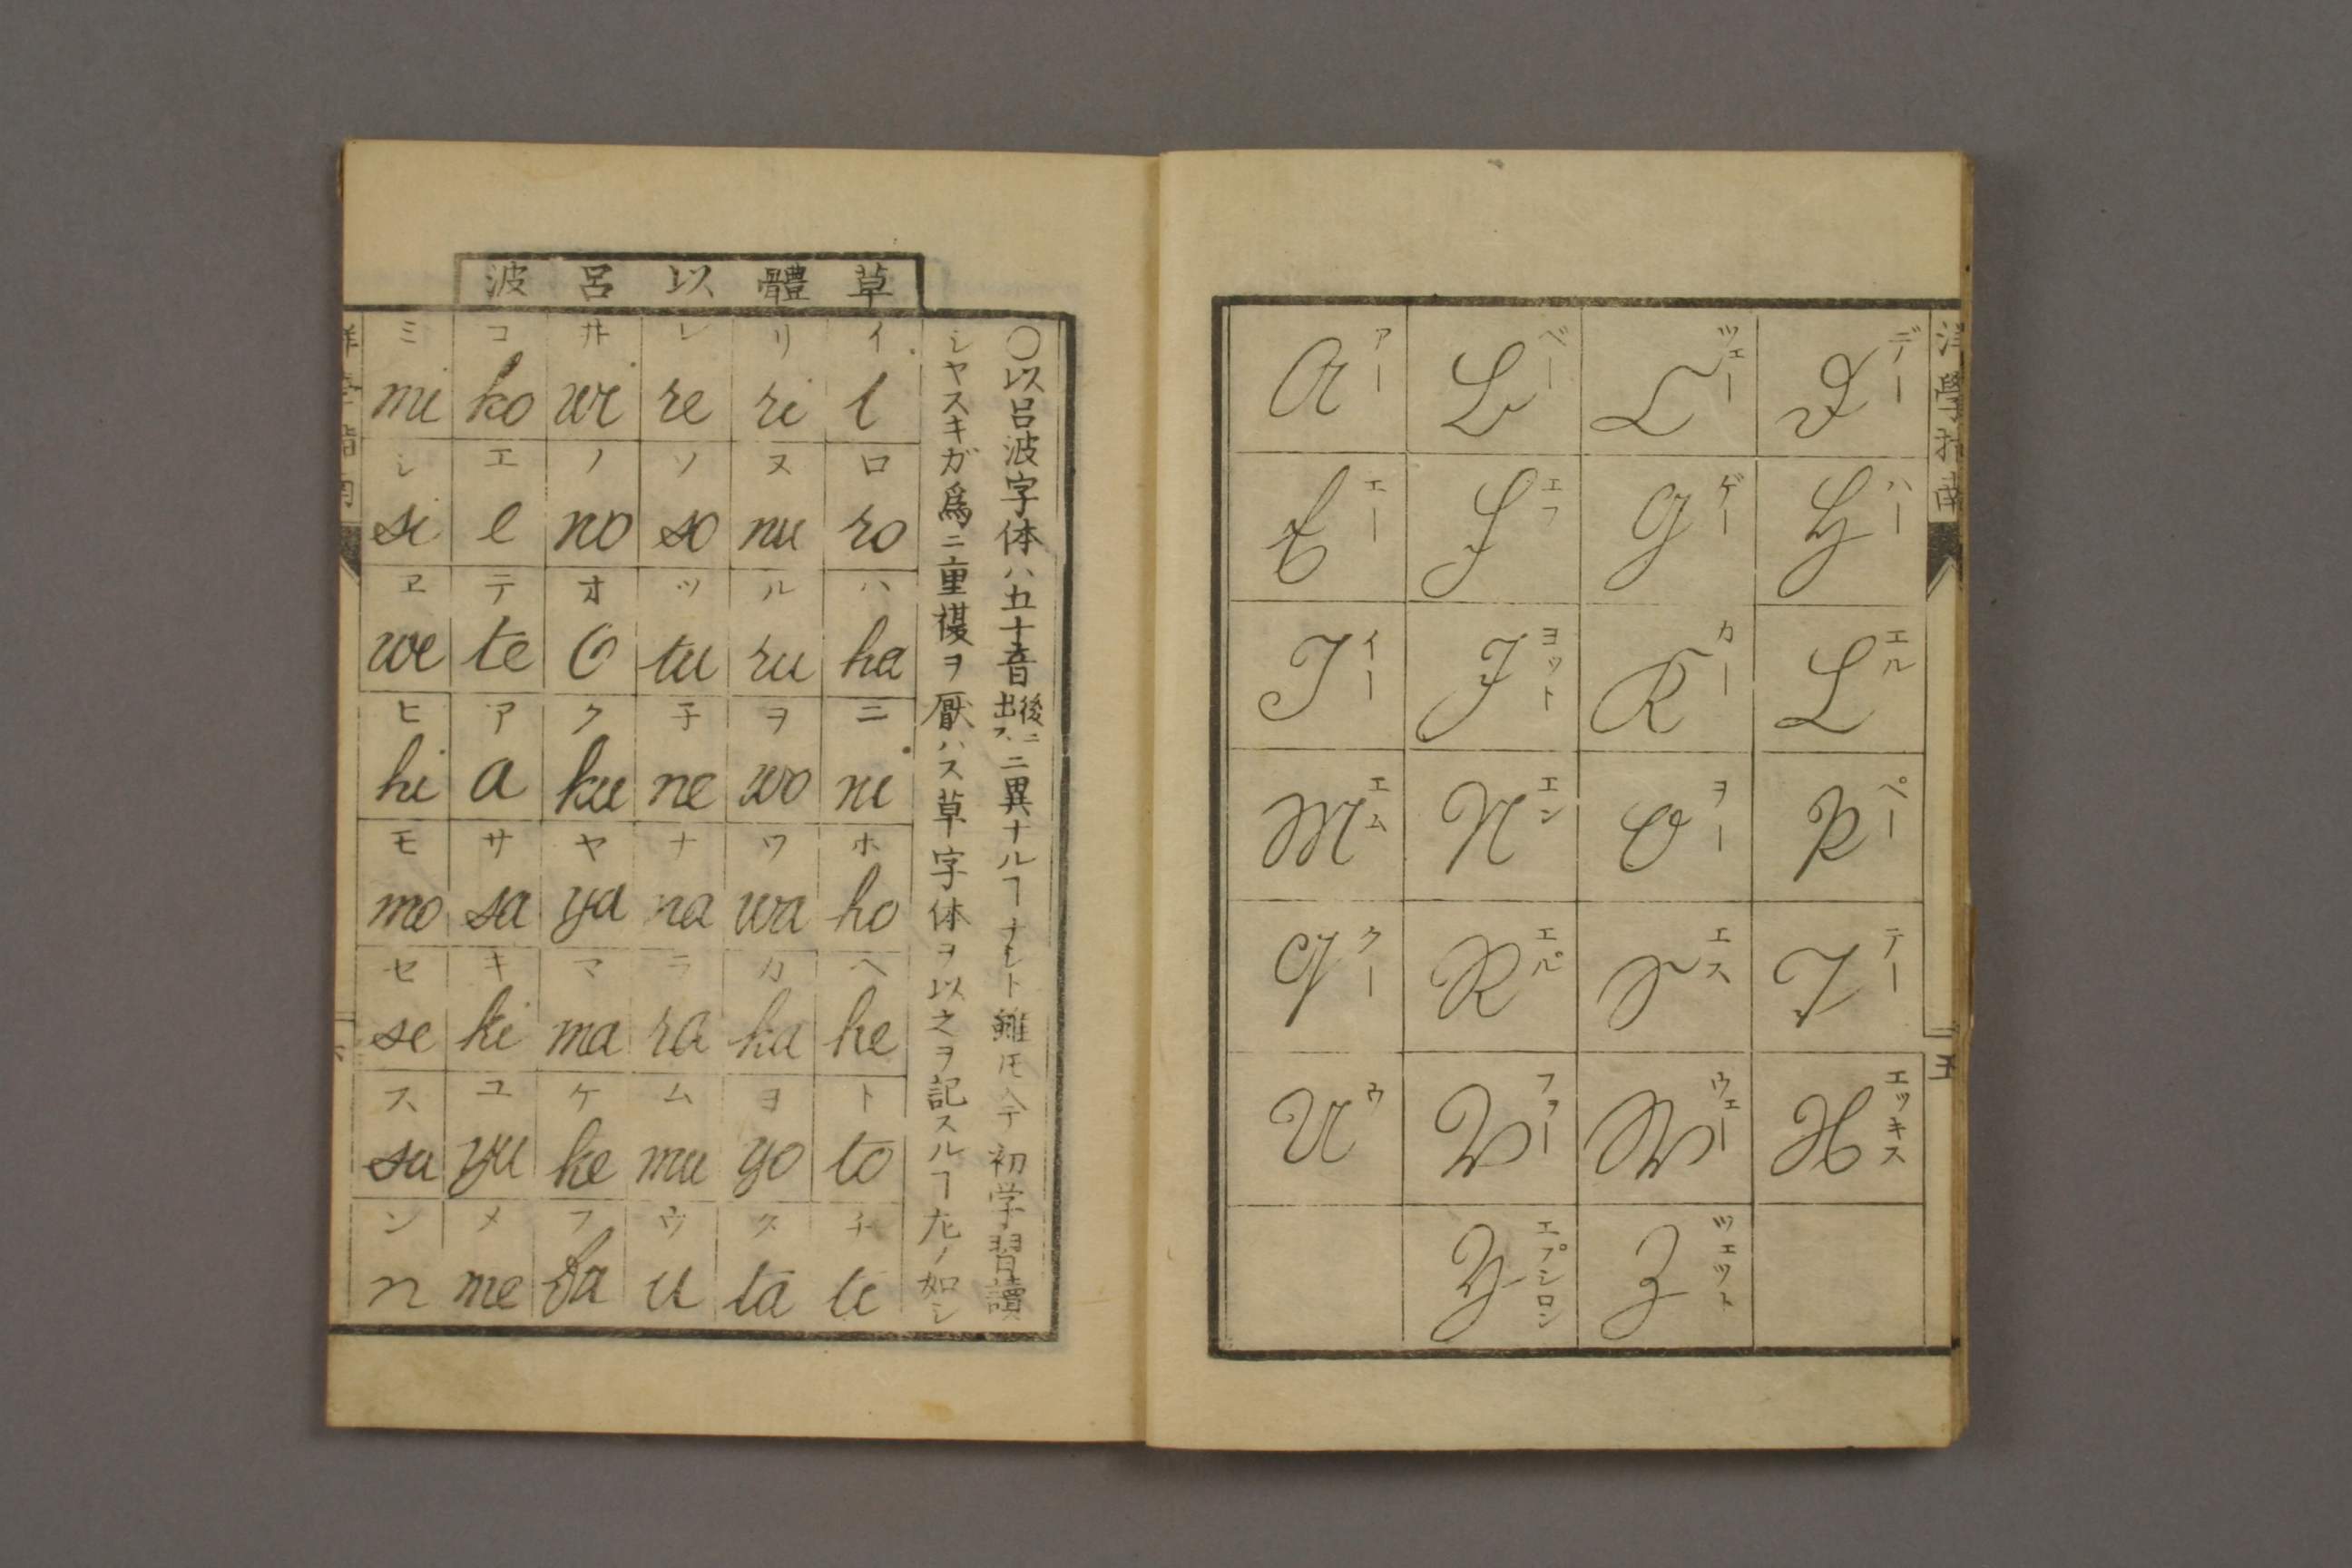 洋學指南
アー ベー ツェー デー
A B C D
エー エフ ゲー ハー
E F G H
イー ヨット カー エル
I J K L
エム エン ヲー ペー
M N O P
クー エル エス テー
Q R S T
ウ フヲー ウェー エッキス
U V W X
エプシロン ツェット
Y Z
五
〇以呂波字体ハ五十音後ニ出ス、ニ異ナルヿナシト雖𪜈今初学習讀
シヤスキガ爲ニ重複ヲ厭ハス草字体ヲ以之ヲ記スルヿ左ノ如シ
草體以呂波
イ i
ロ ro
ハ ha
ニ ni
ホ ho
ヘ he
ト to
チ ti
リ ri
ヌ nu
ル ru
ヲ wo
ワ wa
カ ka
ヨ yo
タ ta
レ re
ソ so
ツ tu
子 ne
ナ na
ラ ra
ム mu
ウ u
井 wi
ノ no
オ o
ク ku
ヤ ya
マ ma
ケ ke
フ fu
コ ko
エ e
テ te
ア a
サ sa
キ ki
ユ yu
メ me
ミ mi
シ si
ヱ we
ヒ hi
モ mo
セ se
ス su
ン n